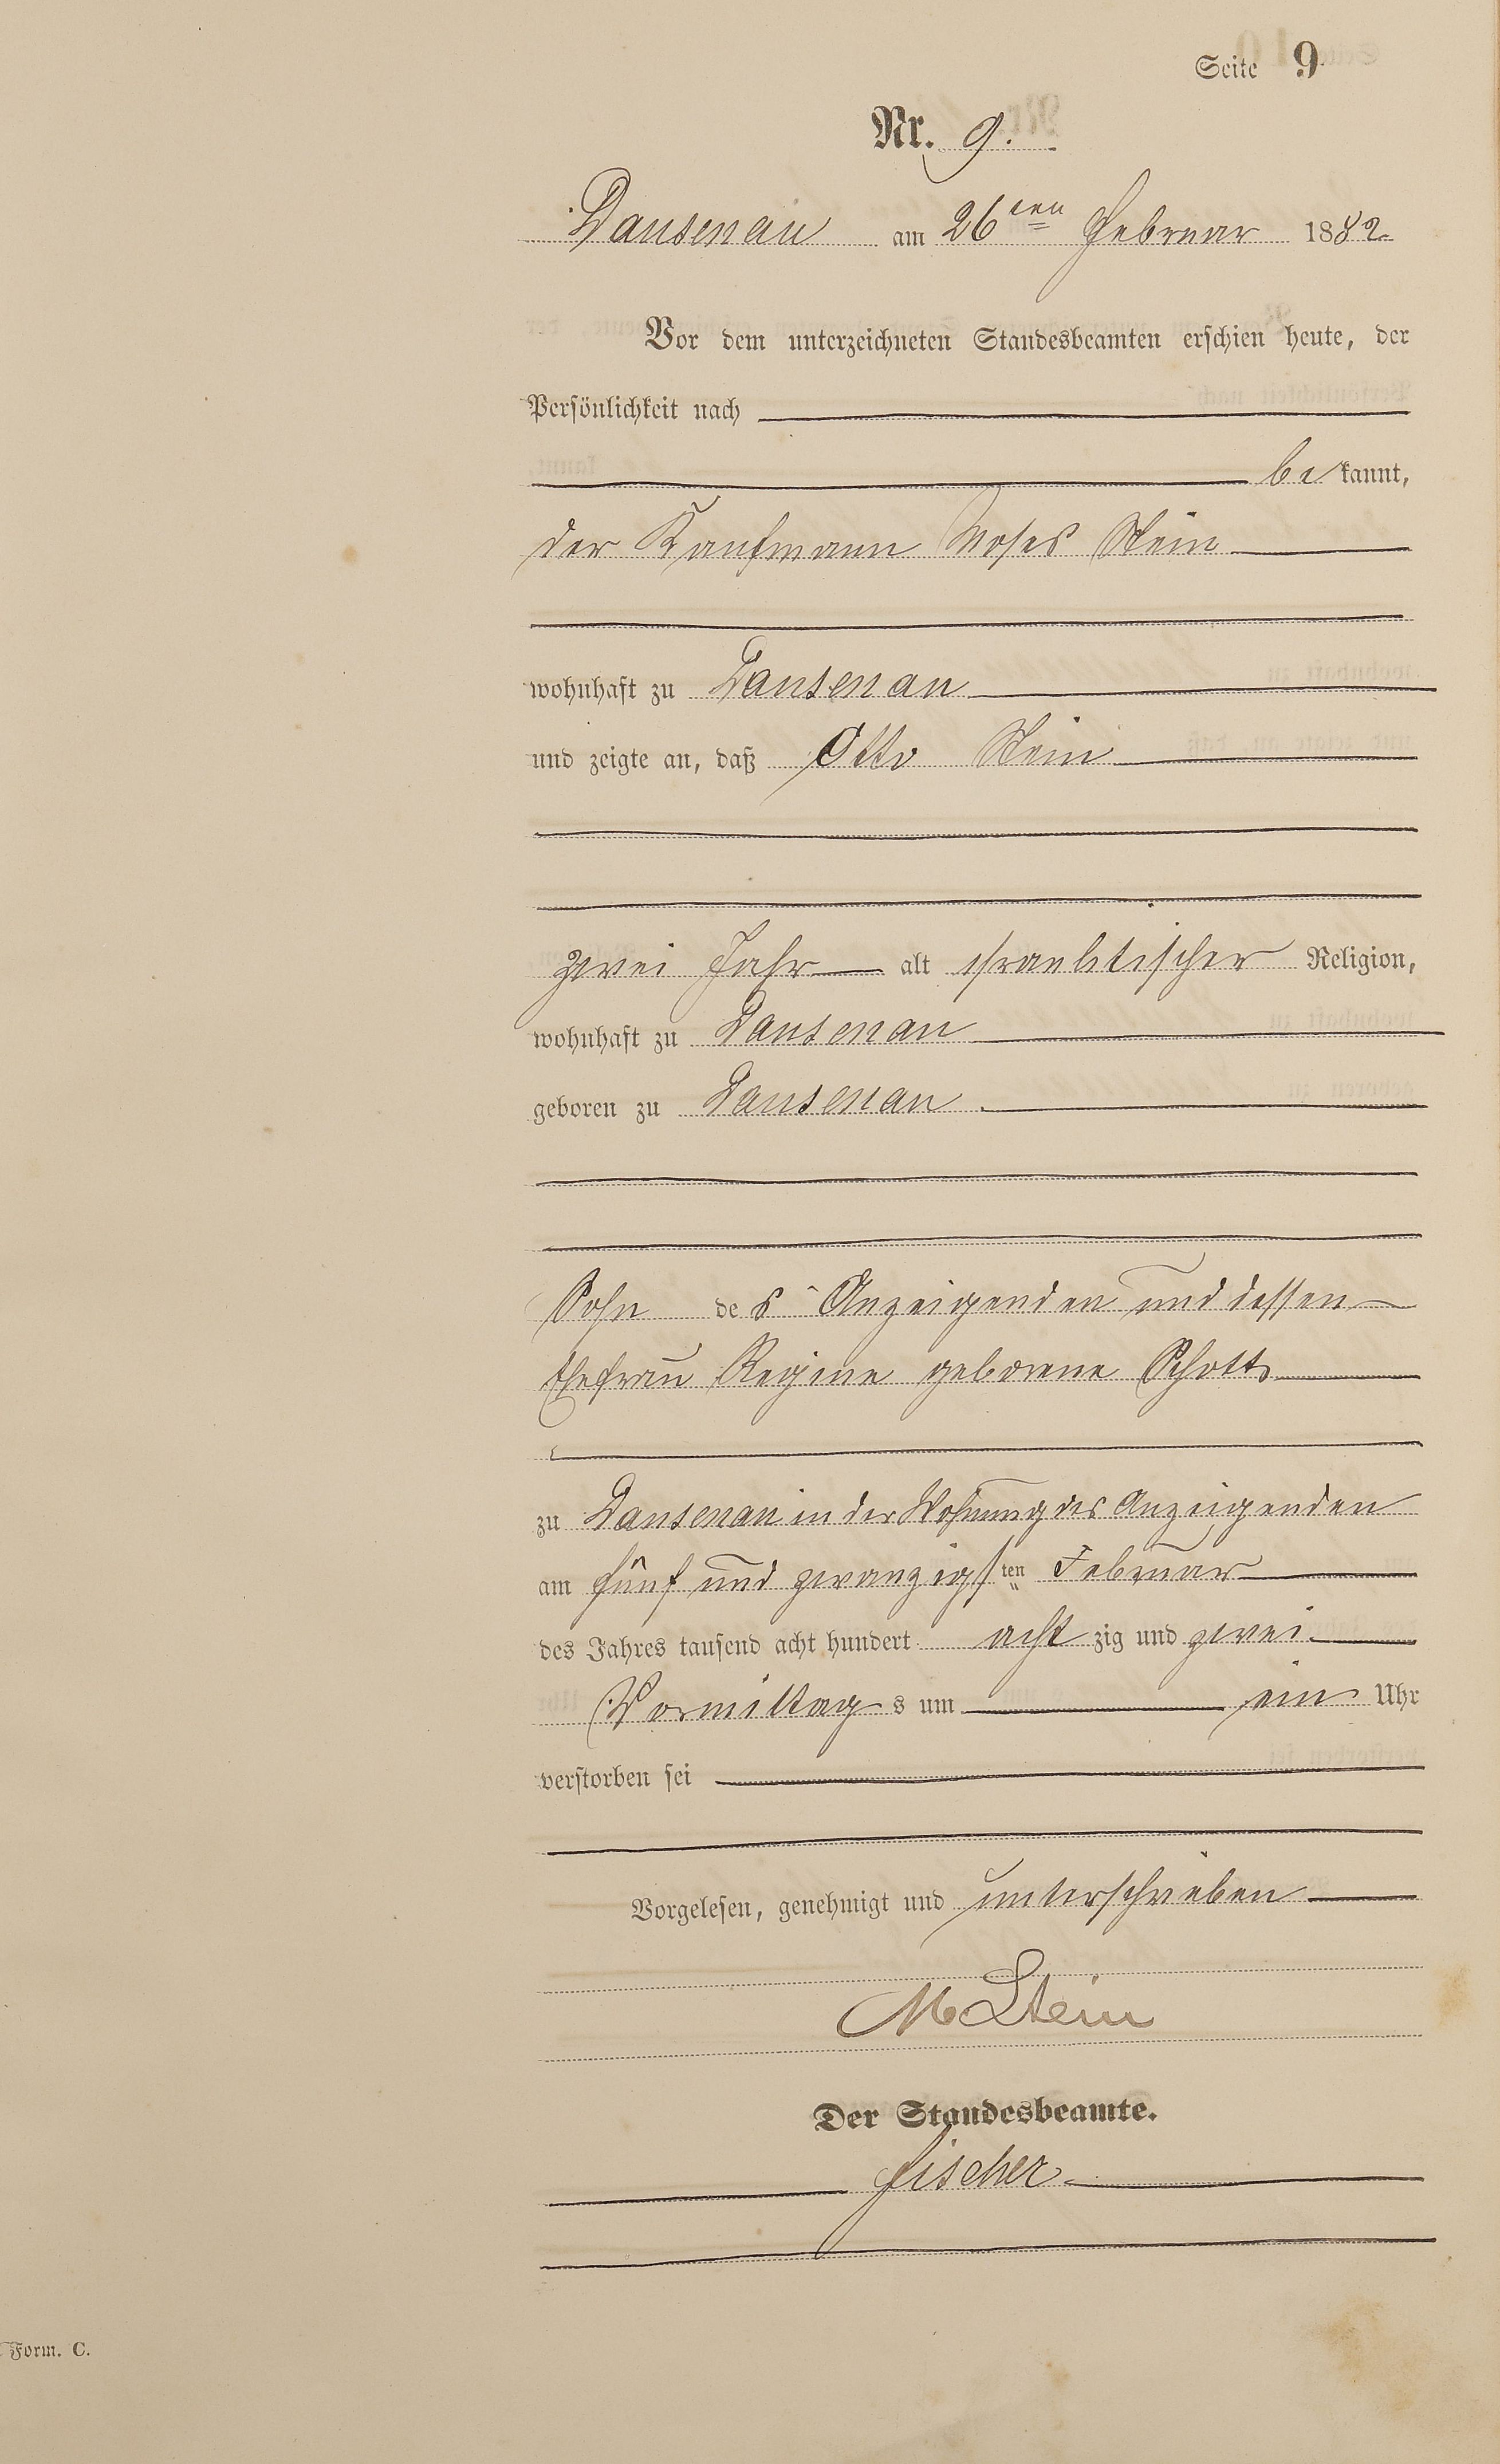 Seite 9
Nr. 9.
Dausenau am 26ten Februar 1882
Vor dem unterzeichneten Standesbeamten erschien heute, der
Persönlichkeit nach
bekannt,
der Kaufmann Moses Stein
wohnhaft zu Dausenau
und zeigte an, daß Otto Stein
zwei Jahr alt israelitischer Religion,
wohnhaft zu Dausenau
geboren zu Dausenau.
Sohn des Anzeigenden und dessen
Ehefrau Regine geborene Schott
zu Dausenau in der Wohnung des Anzeigenden
am fünf und zwanzigsten Februar
des Jahres tausend acht hundert achtzig und zwei
Vormittags um ein Uhr
verstorben sei
Vorgelesen, genehmigt und unterschrieben
M Stein
Der Standesbeamte.
Fischer
Form. C.